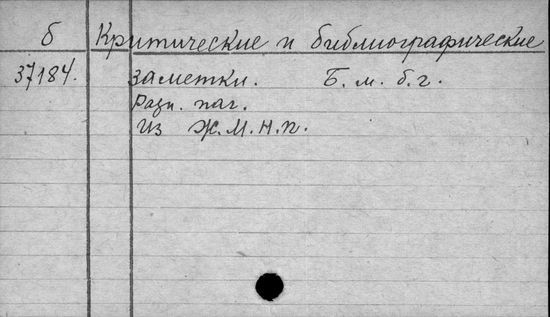 б Критические и библиографические
37184. заметки. Б. м. б. г.
Разн. паг.
Из Ж. М. Н. п.